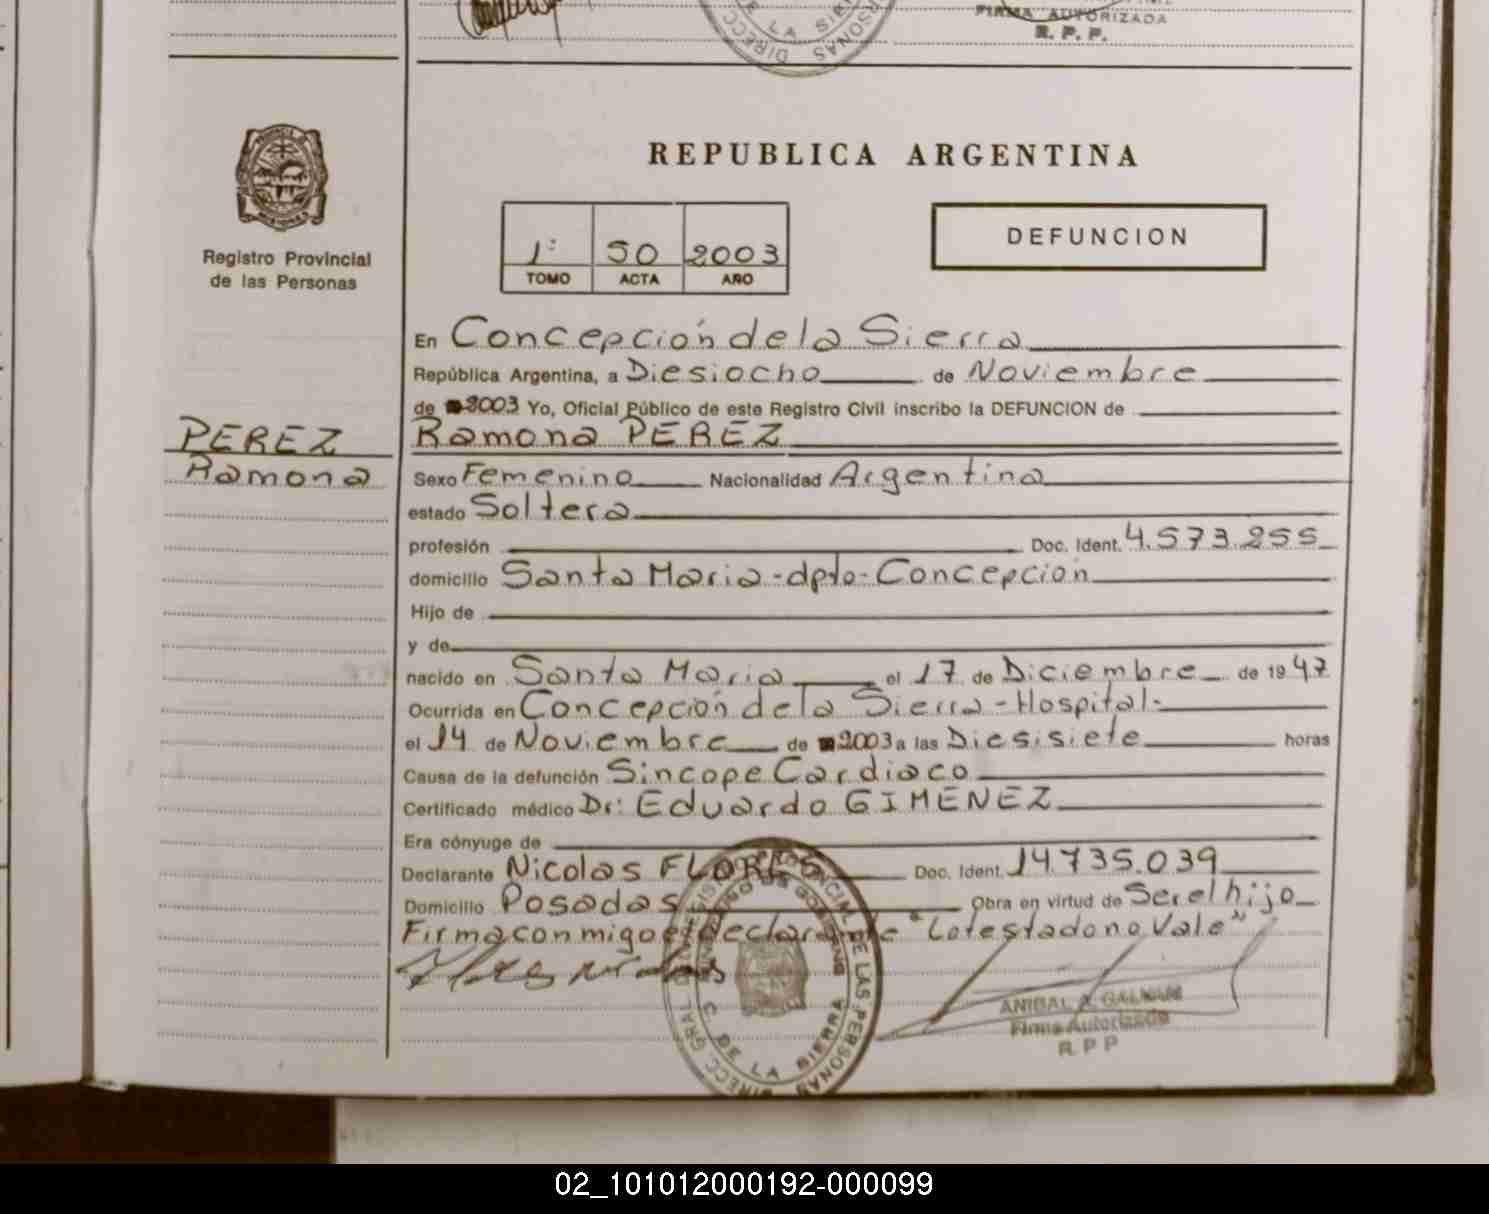 FIRMA AUTORIZADA
R. P. P.
DIRECC
DE LA SI
PERSONAS
REPUBLICA ARGENTINA
Registro Provincial
de las Personas
1º 50 2003
TOMO ACTA AÑO
DEFUNCION
En Concepción de la Sierra
República Argentina, a Diesiocho de Noviembre
de 2003 Yo, Oficial Público de este Registro Civil inscribo la DEFUNCION de
PEREZ
Ramona
Ramona PEREZ
Sexo Femenino Nacionalidad Argentina
estado Soltera
profesión Doc. Ident. 4.573.255
domicilio Santa Maria-dpto-Concepción
Hijo de
y de
nacido en Santa Maria el 17 de Diciembre de 1947
Ocurrida en Concepción de la Sierra-Hospital-
el 14 de Noviembre de 2003 a las Diesisiete horas
Causa de la defunción Sincope Cardiaco
Certificado médico Dr: Eduardo GIMENEZ
Era cónyuge de
Declarante Nicolas FLORES Doc. Ident. 14.735.039
Domicilio Posadas Obra en virtud de Ser el hijo
Firma conmigo el declarante "Lo testado no Vale"
DIRECC. GRAL. DEL REGISTRO PROVINCIAL DE LAS PERSONAS
MINISTERIO DE GOBIERNO
C. DE LA SIERRA
ANIBAL A. GALEANO
Firma Autorizada
R. P. P
02_101012000192-000099